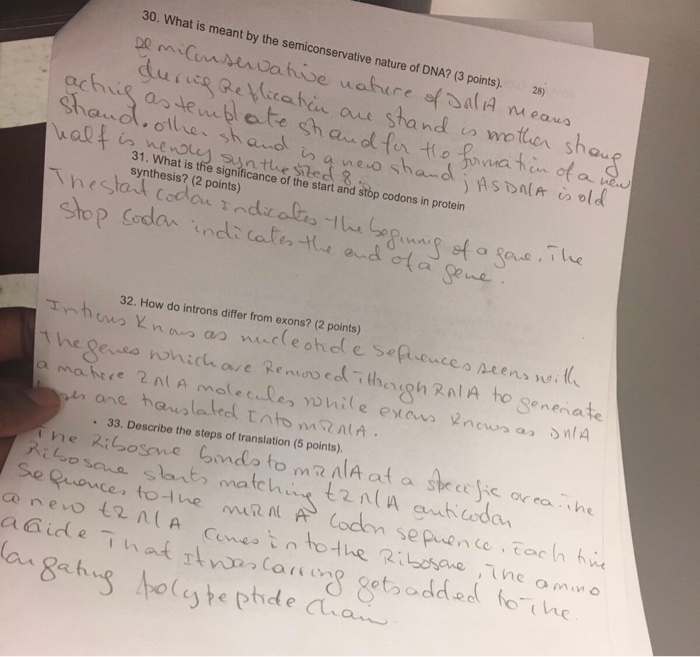 30. What is meant by the semiconservative nature of DNA? (3 points).
28)
Semiconservative nature of DNA means
during Replication one strand is mother strang
acting as template strand for the formation of a new
strand. other strand is a new strand; AS DNA is old
half is newly synthesized 8.
31. What is the significance of the start and stop codons in protein
synthesis? (2 points)
The start codon indicates the beginning of a gene. The
stop codon indicates the end of a gene.
32. How do introns differ from exons? (2 points)
Introns Knows as nucleotide sequences seens with
the genes which are Removed through RNA to generate
a mature RNA molecules while exons knows as DNA
are translated Into mRNA.
33. Describe the steps of translation (5 points).
The Ribosome binds to mRNA at a specific area. The
Ribosome starts matching tRNA anticodon
Sequences to the mRNA codon sequence. Each time
a new tRNA comes into the Ribosome, The amino
acide That It was carring gets added to The
longating polypeptide chain.